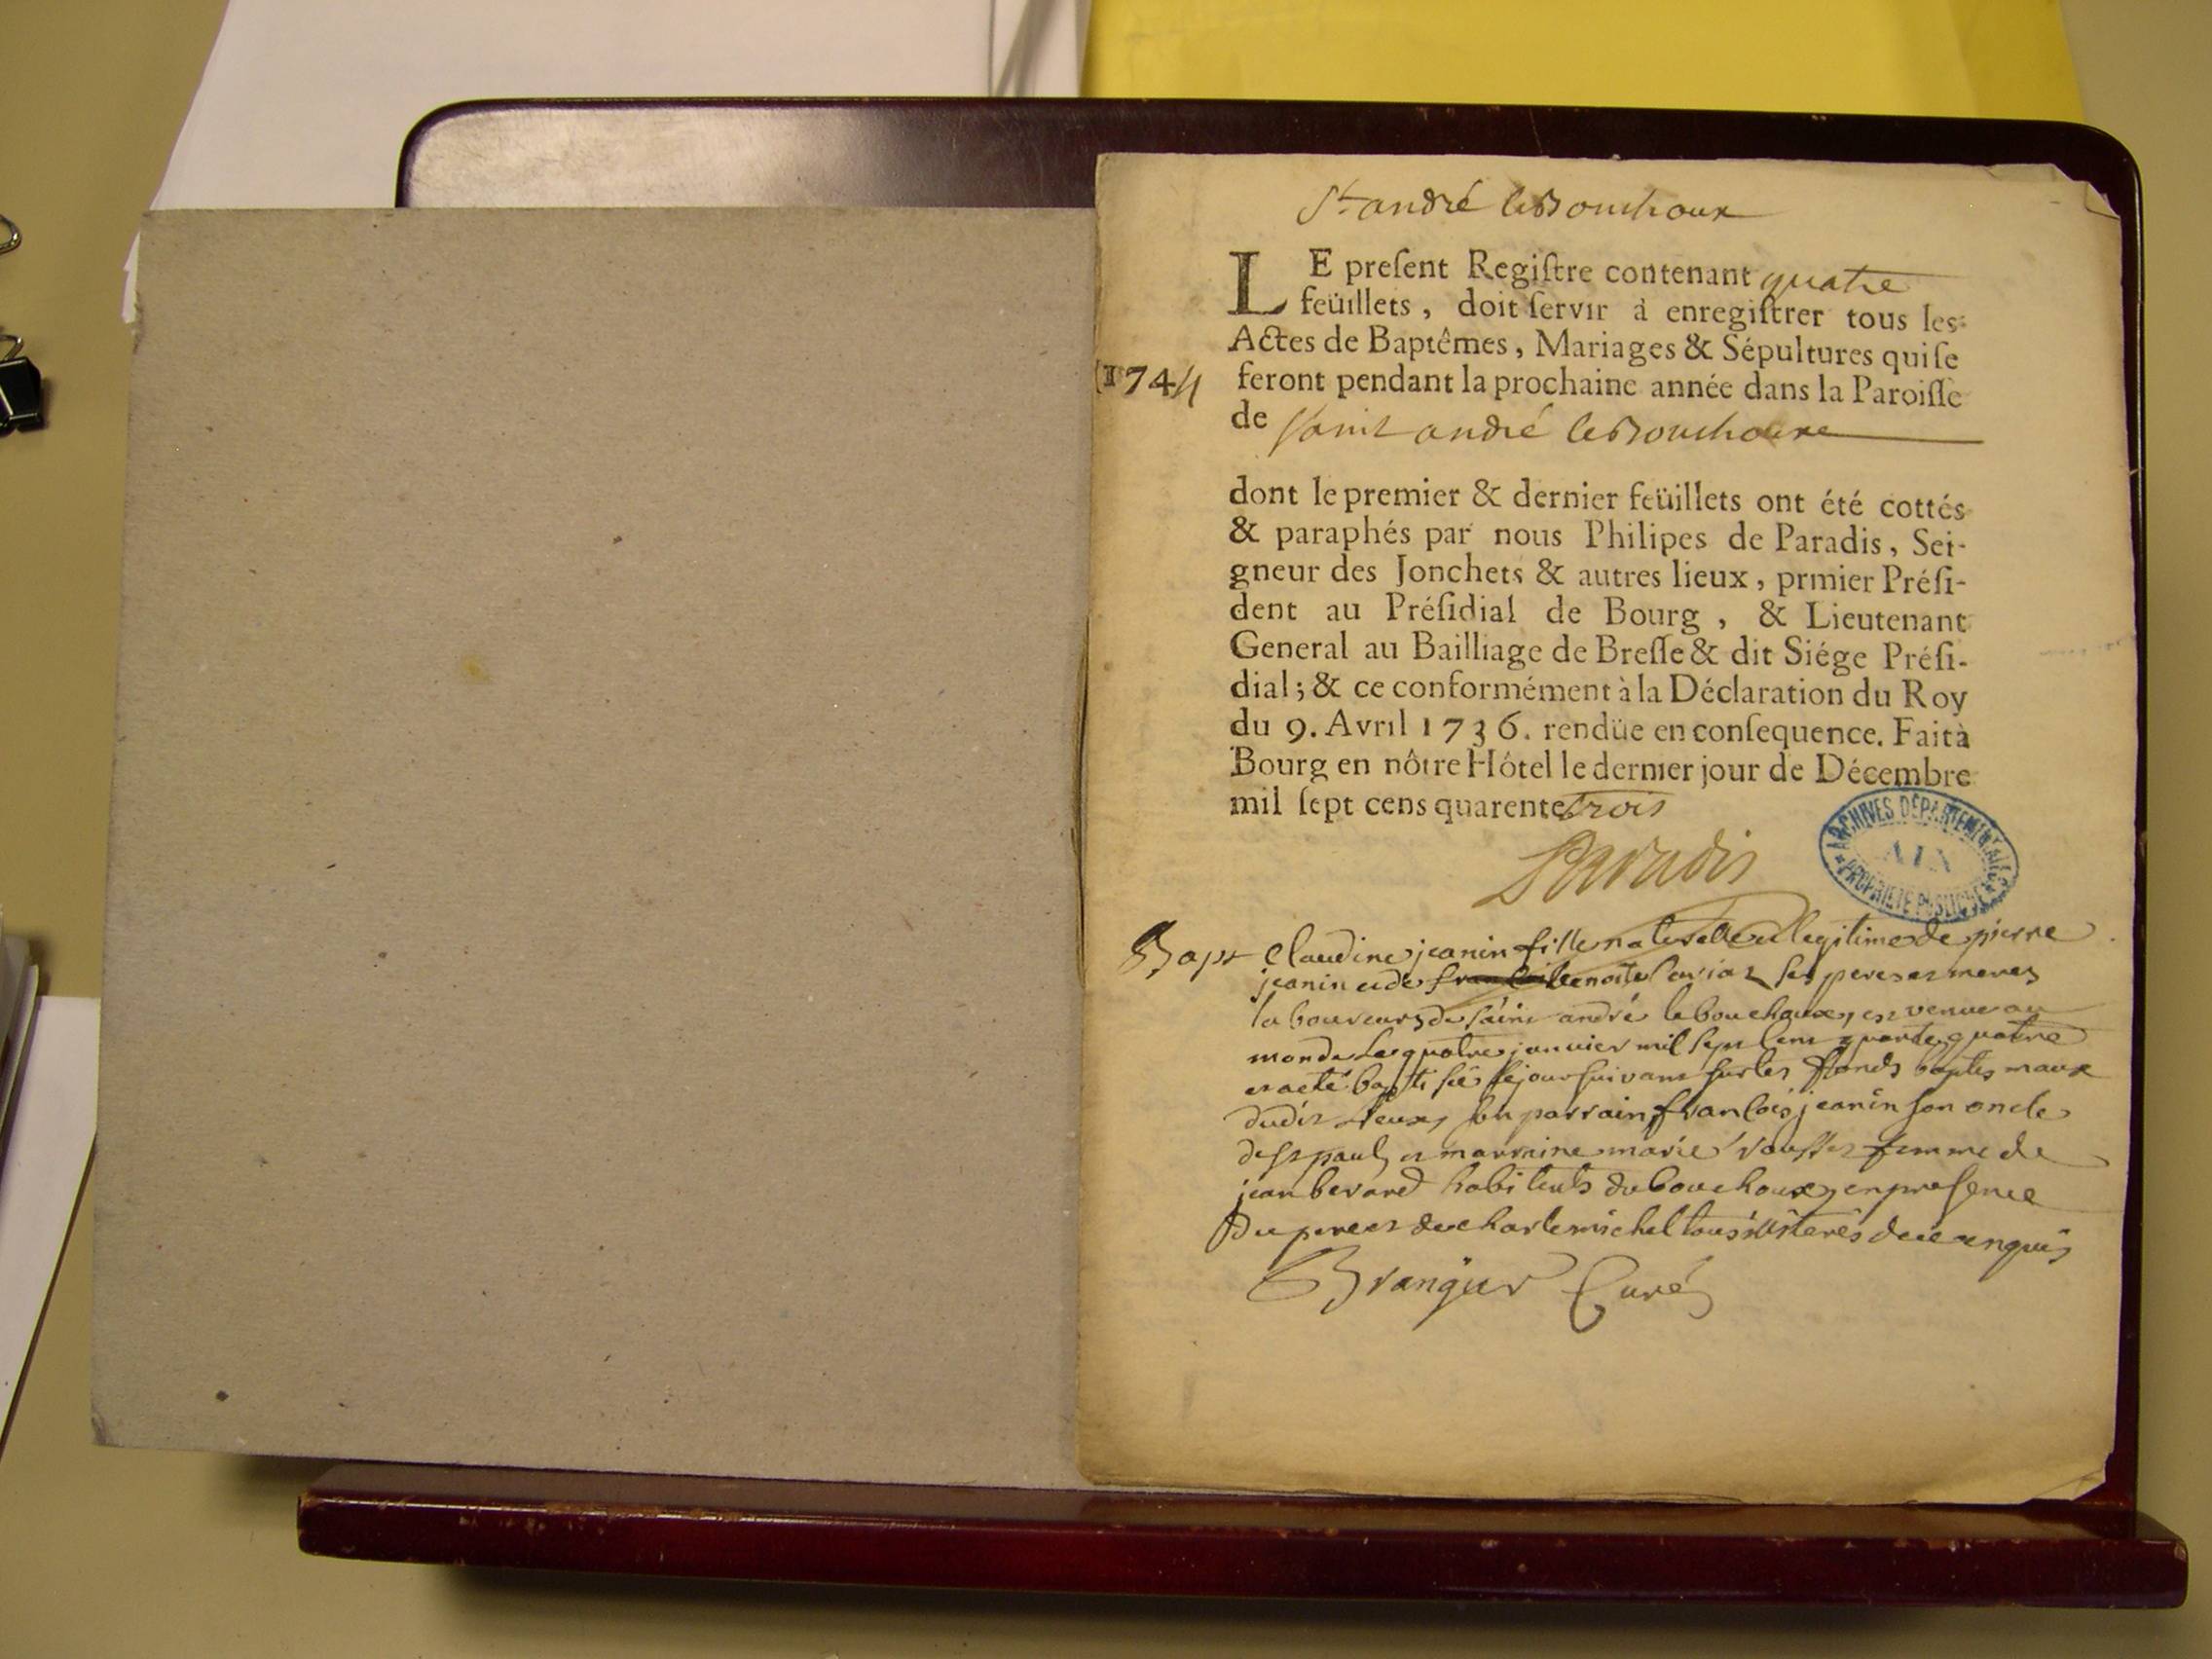 St andré le Bouchoux
LE preſent Regiſtre contenant quatre
feüillets, doit ſervir à enregiſtrer tous les
Actes de Baptêmes, Mariages & Sépultures qui ſe
1744 feront pendant la prochaine année dans la Paroiſſe
de Saint andré le Bouchoux
dont le premier & dernier feüillets ont été cottés
& paraphés par nous Philipes de Paradis, Sei-
gneur des Jonchets & autres lieux, prmier Préſi-
dent au Préſidial de Bourg, & Lieutenant
General au Bailliage de Breſſe & dit Siége Préſi-
dial; & ce conformément à la Déclaration du Roy
du 9. Avril 1736. rendüe en conſequence. Fait à
Bourg en nôtre Hôtel le dernier jour de Décembre
mil ſept cens quarente trois
Paradis
ARCHIVES DÉPARTEMENTALES
AIN
PROPRIÉTÉ PUBLIQUE
Bapt Claudine jeanin fille naturelle et legitime de pierre
jeanin et de benoite ses peres et meres
laboureurs de saint andré le bouchoux, est venue au
monde le quatre janvier mil sept cent quarte quatre
et a eté baptisée le jour suivant sur les fonds baptismaux
dudit lieux, son parrain françois jeanin son oncle
de st paul, et marraine marie femme de
jean berard habitents du bouchoux, en presence
du pere et de charle michel tous illiterés de ce enquis
Brangier Curé